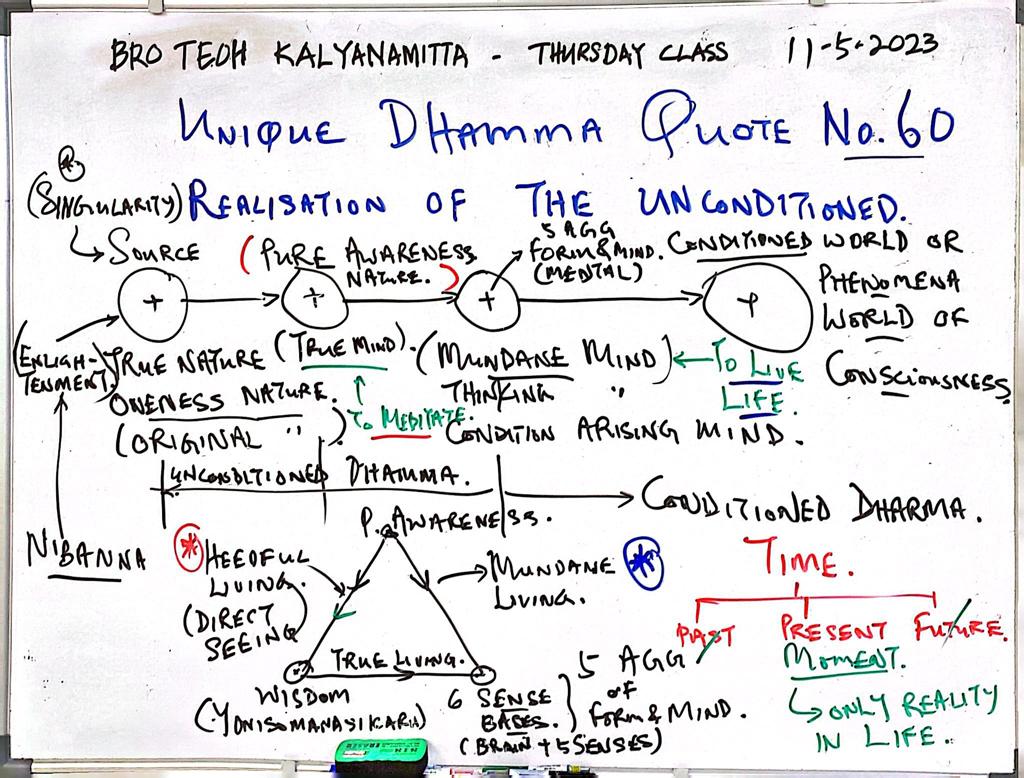 BRO TEOH KALYANAMITTA - THURSDAY CLASS 11-5-2023
UNIQUE DHAMMA QUOTE No. 60
(SINGULARITY) REALISATION OF THE UNCONDITIONED.
SOURCE
(PURE AWARENESS
NATURE.)
5 AGG
FORM & MIND.
(MENTAL)
CONDITIONED WORLD OR
PHENOMENA
WORLD OF
CONSCIOUSNESS.
(ENLIGH-
TENMENT)
TRUE NATURE
ONENESS NATURE.
(ORIGINAL ")
(TRUE MIND).
TO MEDITATE.
(MUNDANE MIND)
THINKING "
TO LIVE
LIFE.
CONDITION ARISING MIND.
UNCONDITIONED DHAMMA.
CONDITIONED DHARMA.
NIBANNA
P. AWARENESS.
HEEDFUL
LIVING.
(DIRECT
SEEING)
MUNDANE
LIVING.
TRUE LIVING.
WISDOM
(YONISOMANASIKARIA)
6 SENSE
BASES.
(BRAIN + 5 SENSES)
5 AGG
OF
FORM & MIND.
TIME.
PAST PRESENT FUTURE.
MOMENT.
ONLY REALITY
IN LIFE.